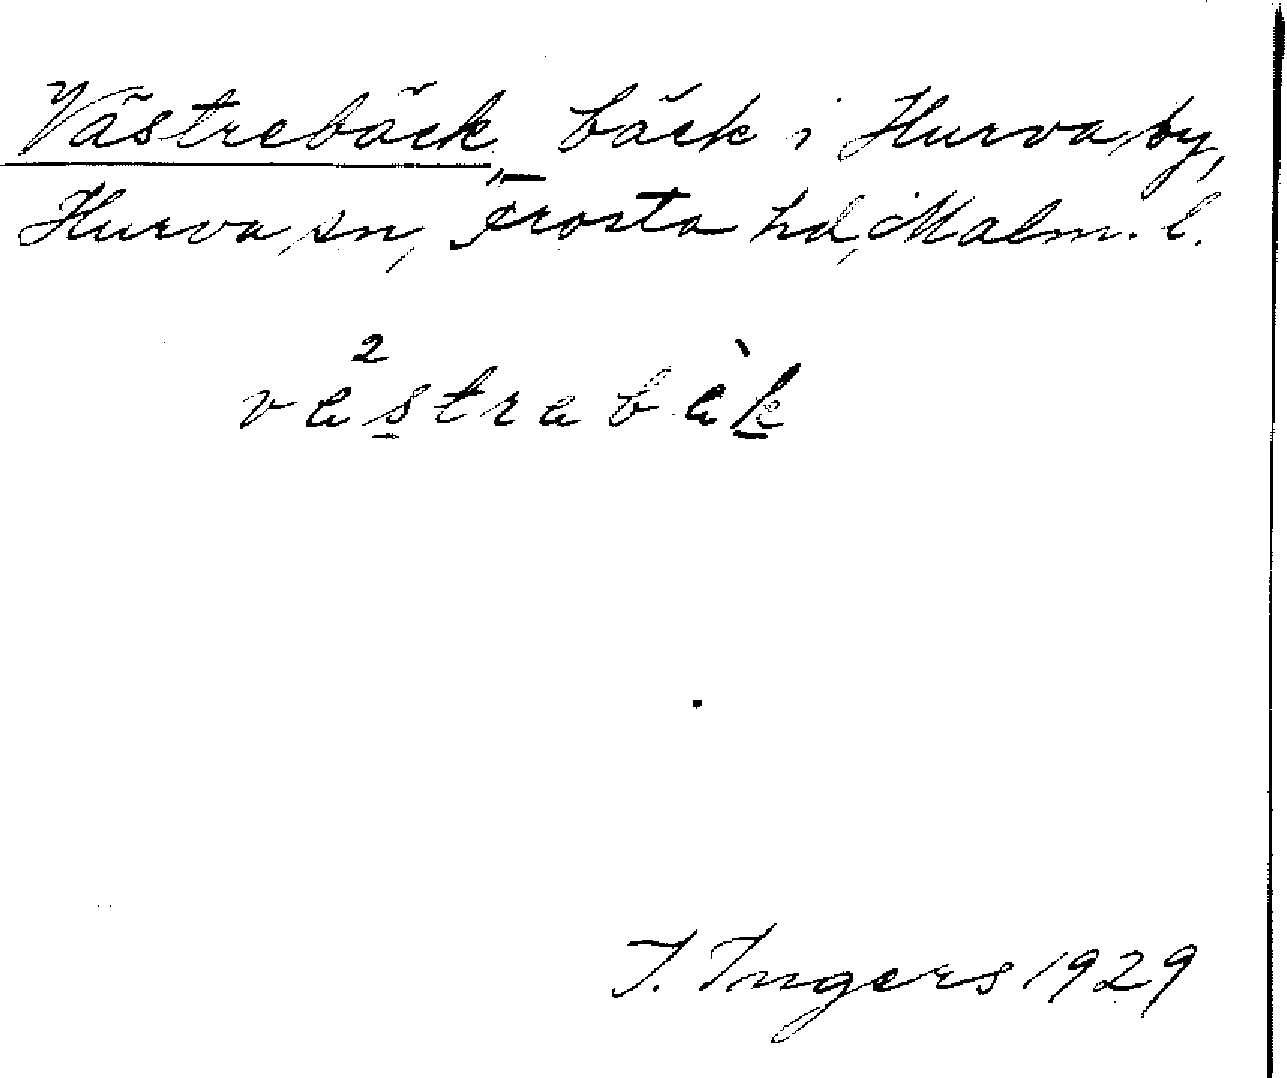 Västrebäck, bäck i Hurva by,
Hurva sn, Frosta hd, Malm. l.
I. Ingers 1929